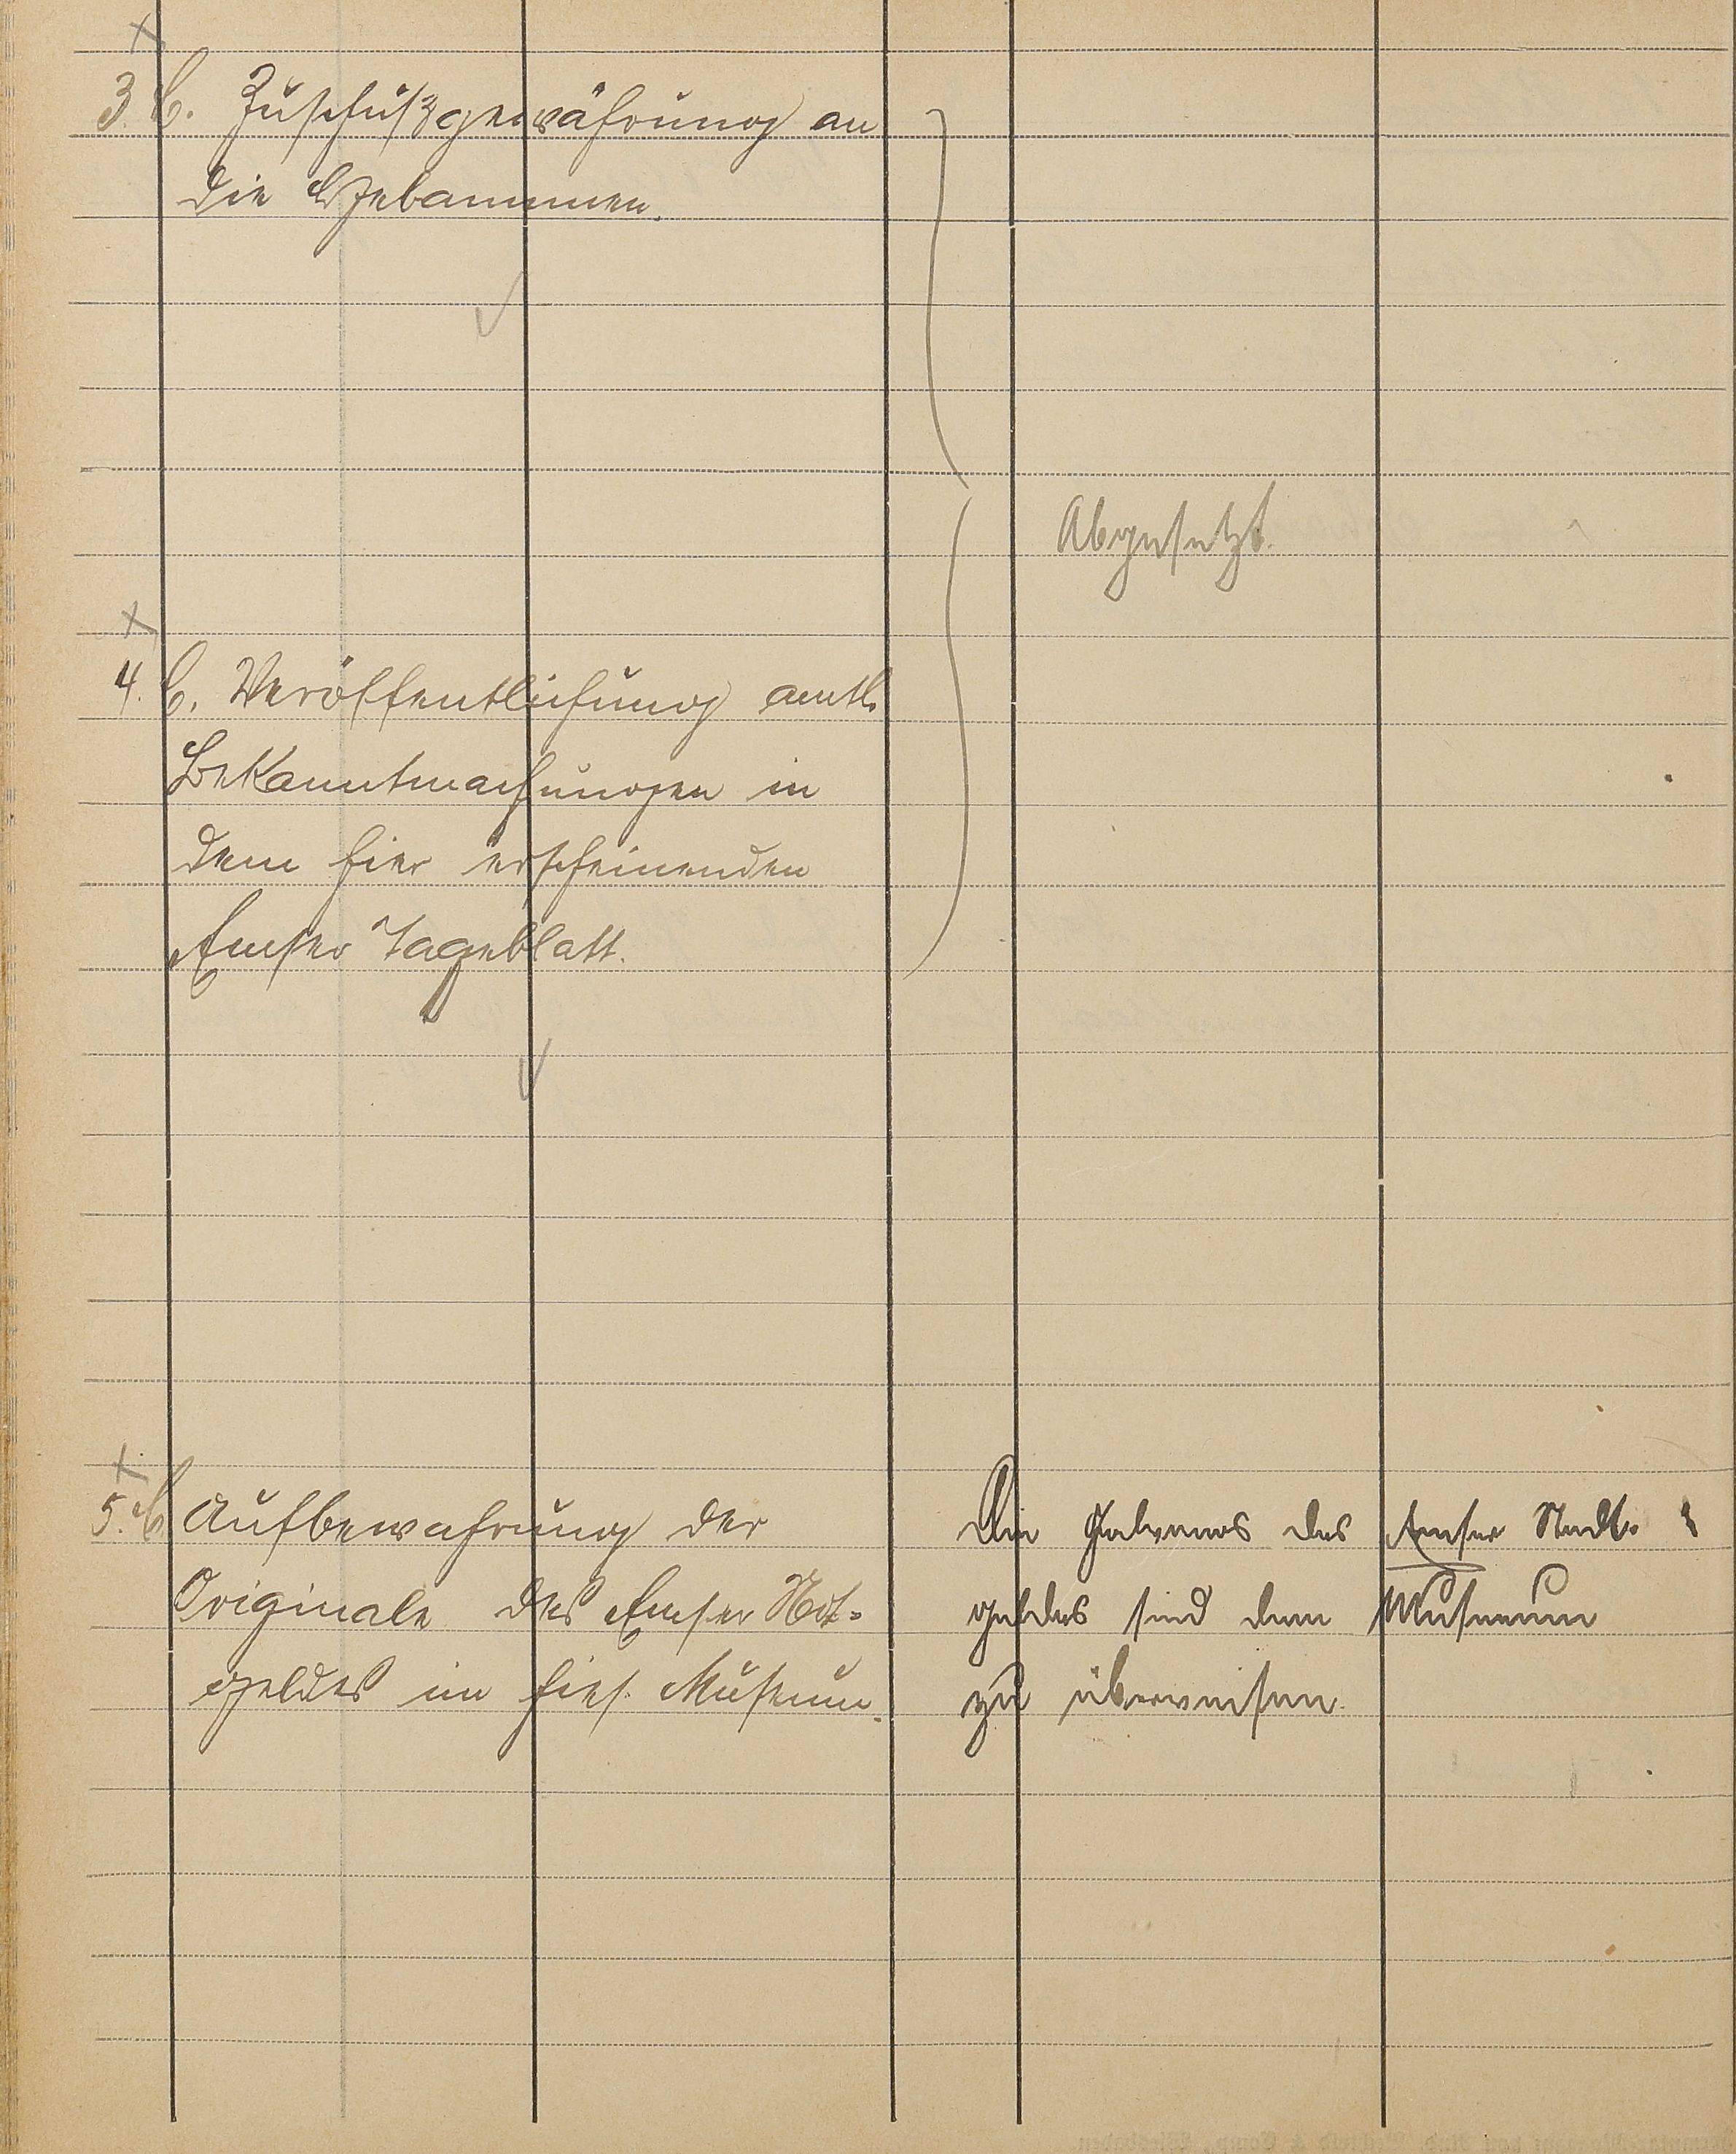 3. C. Zuschußgewährung an
die Hebammen.
Abgesetzt.
4. C. Veröffentlichung amtl.
Bekanntmachungen in
dem hier erscheinenden
Emser Tageblatt.
5. C. Aufbewahrung der
Originale des Emser Not-
geldes im hies. Museum.
Die Galvanos des Emser Stadt-
geldes sind dem Museum
zu überweisen.